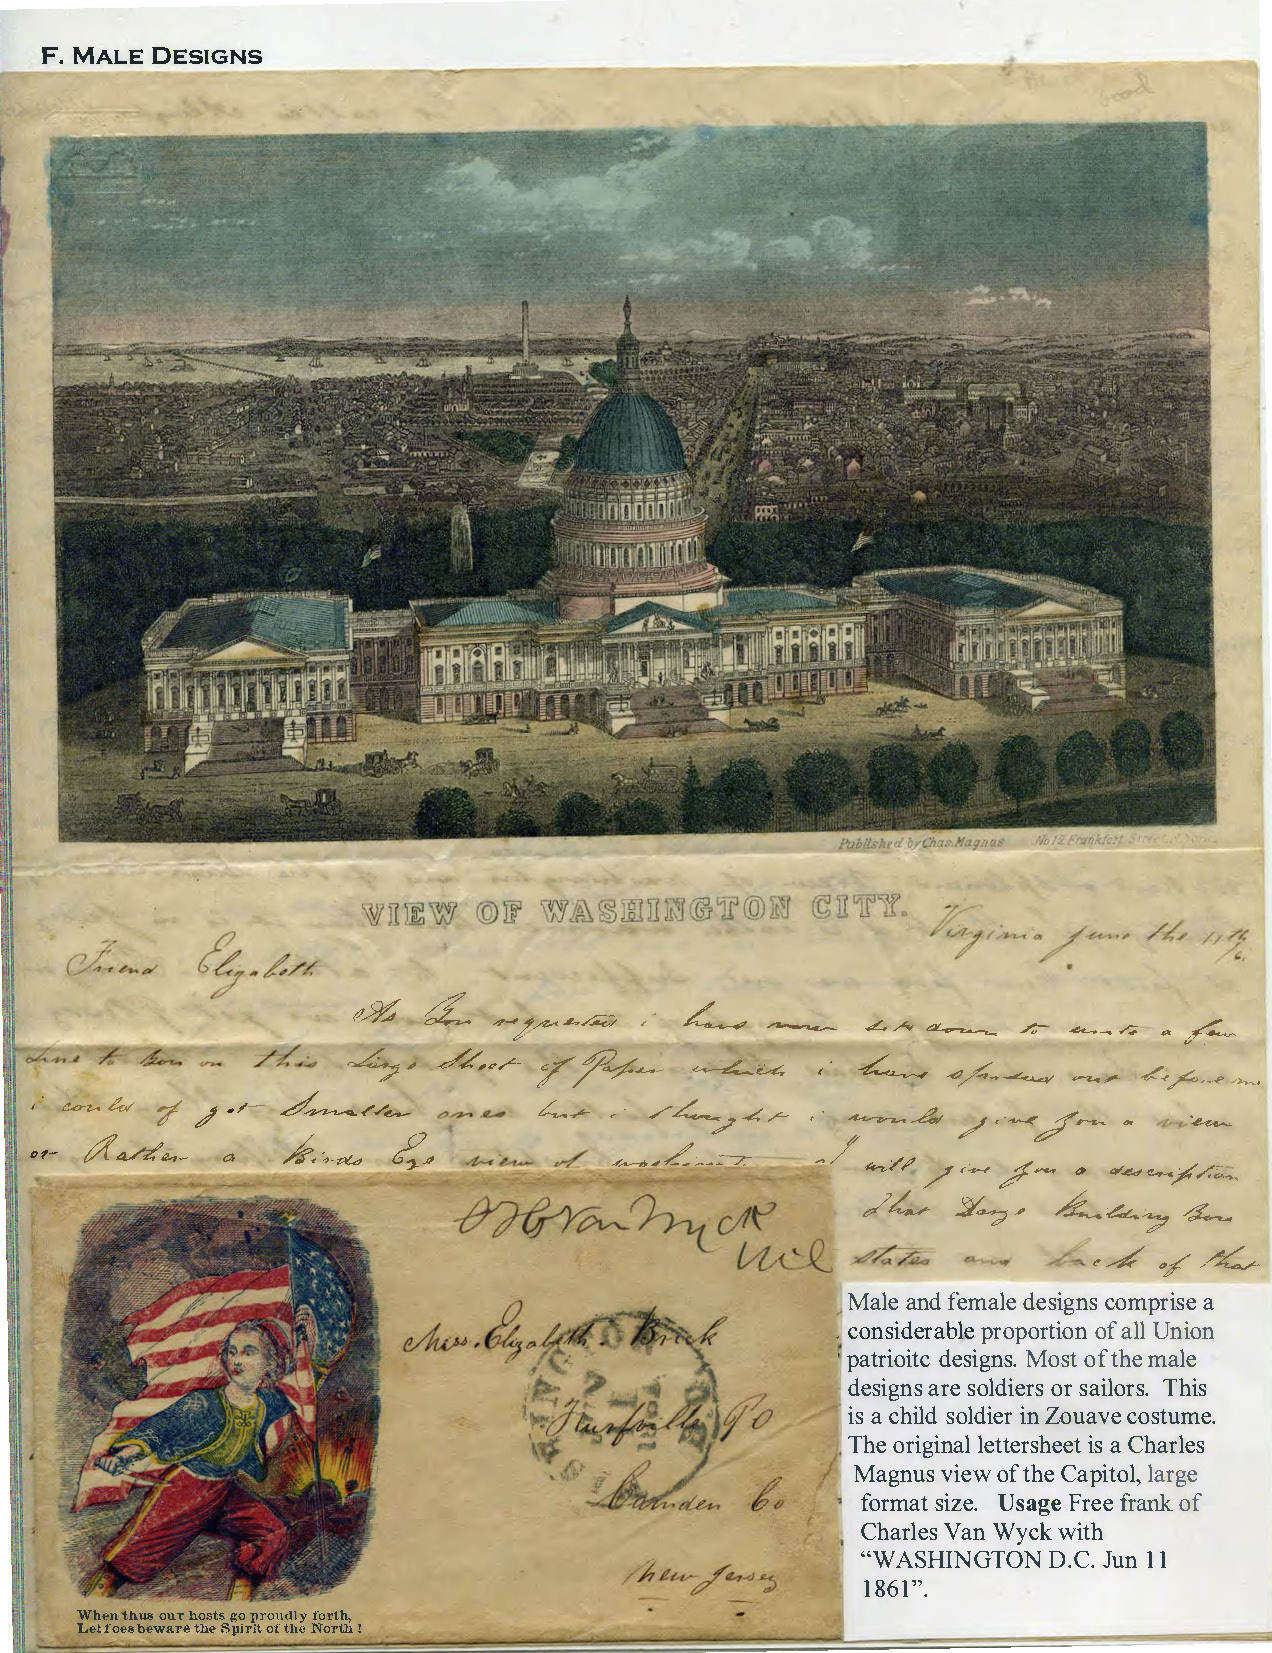 F. MALE DESIGNS
good
Published by Chas. Magnus No 12 Frankfort Street, N.York.
VIEW OF WASHINGTON CITY.
Virginia June the 11th
/61
Friend Elizabeth
As You requested i have now set down to write a few
Line to You on this Large Sheet of Paper which i have spread out before me
i could of got Smaller ones but i thought i would give you a view
or Rather a Birds Eye view of I will give you a description
That Large Building
states and back of that
C H Van Wyck
MC
Miss. Elizabeth. Brick
PO
Camden Co
New Jersey
WASHINGTON
JUN
11
1861
When thus our hosts go proudly forth,
Let foes beware the Spirit of the North!
Male and female designs comprise a
considerable proportion of all Union
patrioitc designs. Most of the male
designs are soldiers or sailors. This
is a child soldier in Zouave costume.
The original lettersheet is a Charles
Magnus view of the Capitol, large
format size. Usage Free frank of
Charles Van Wyck with
“WASHINGTON D.C. Jun 11
1861”.